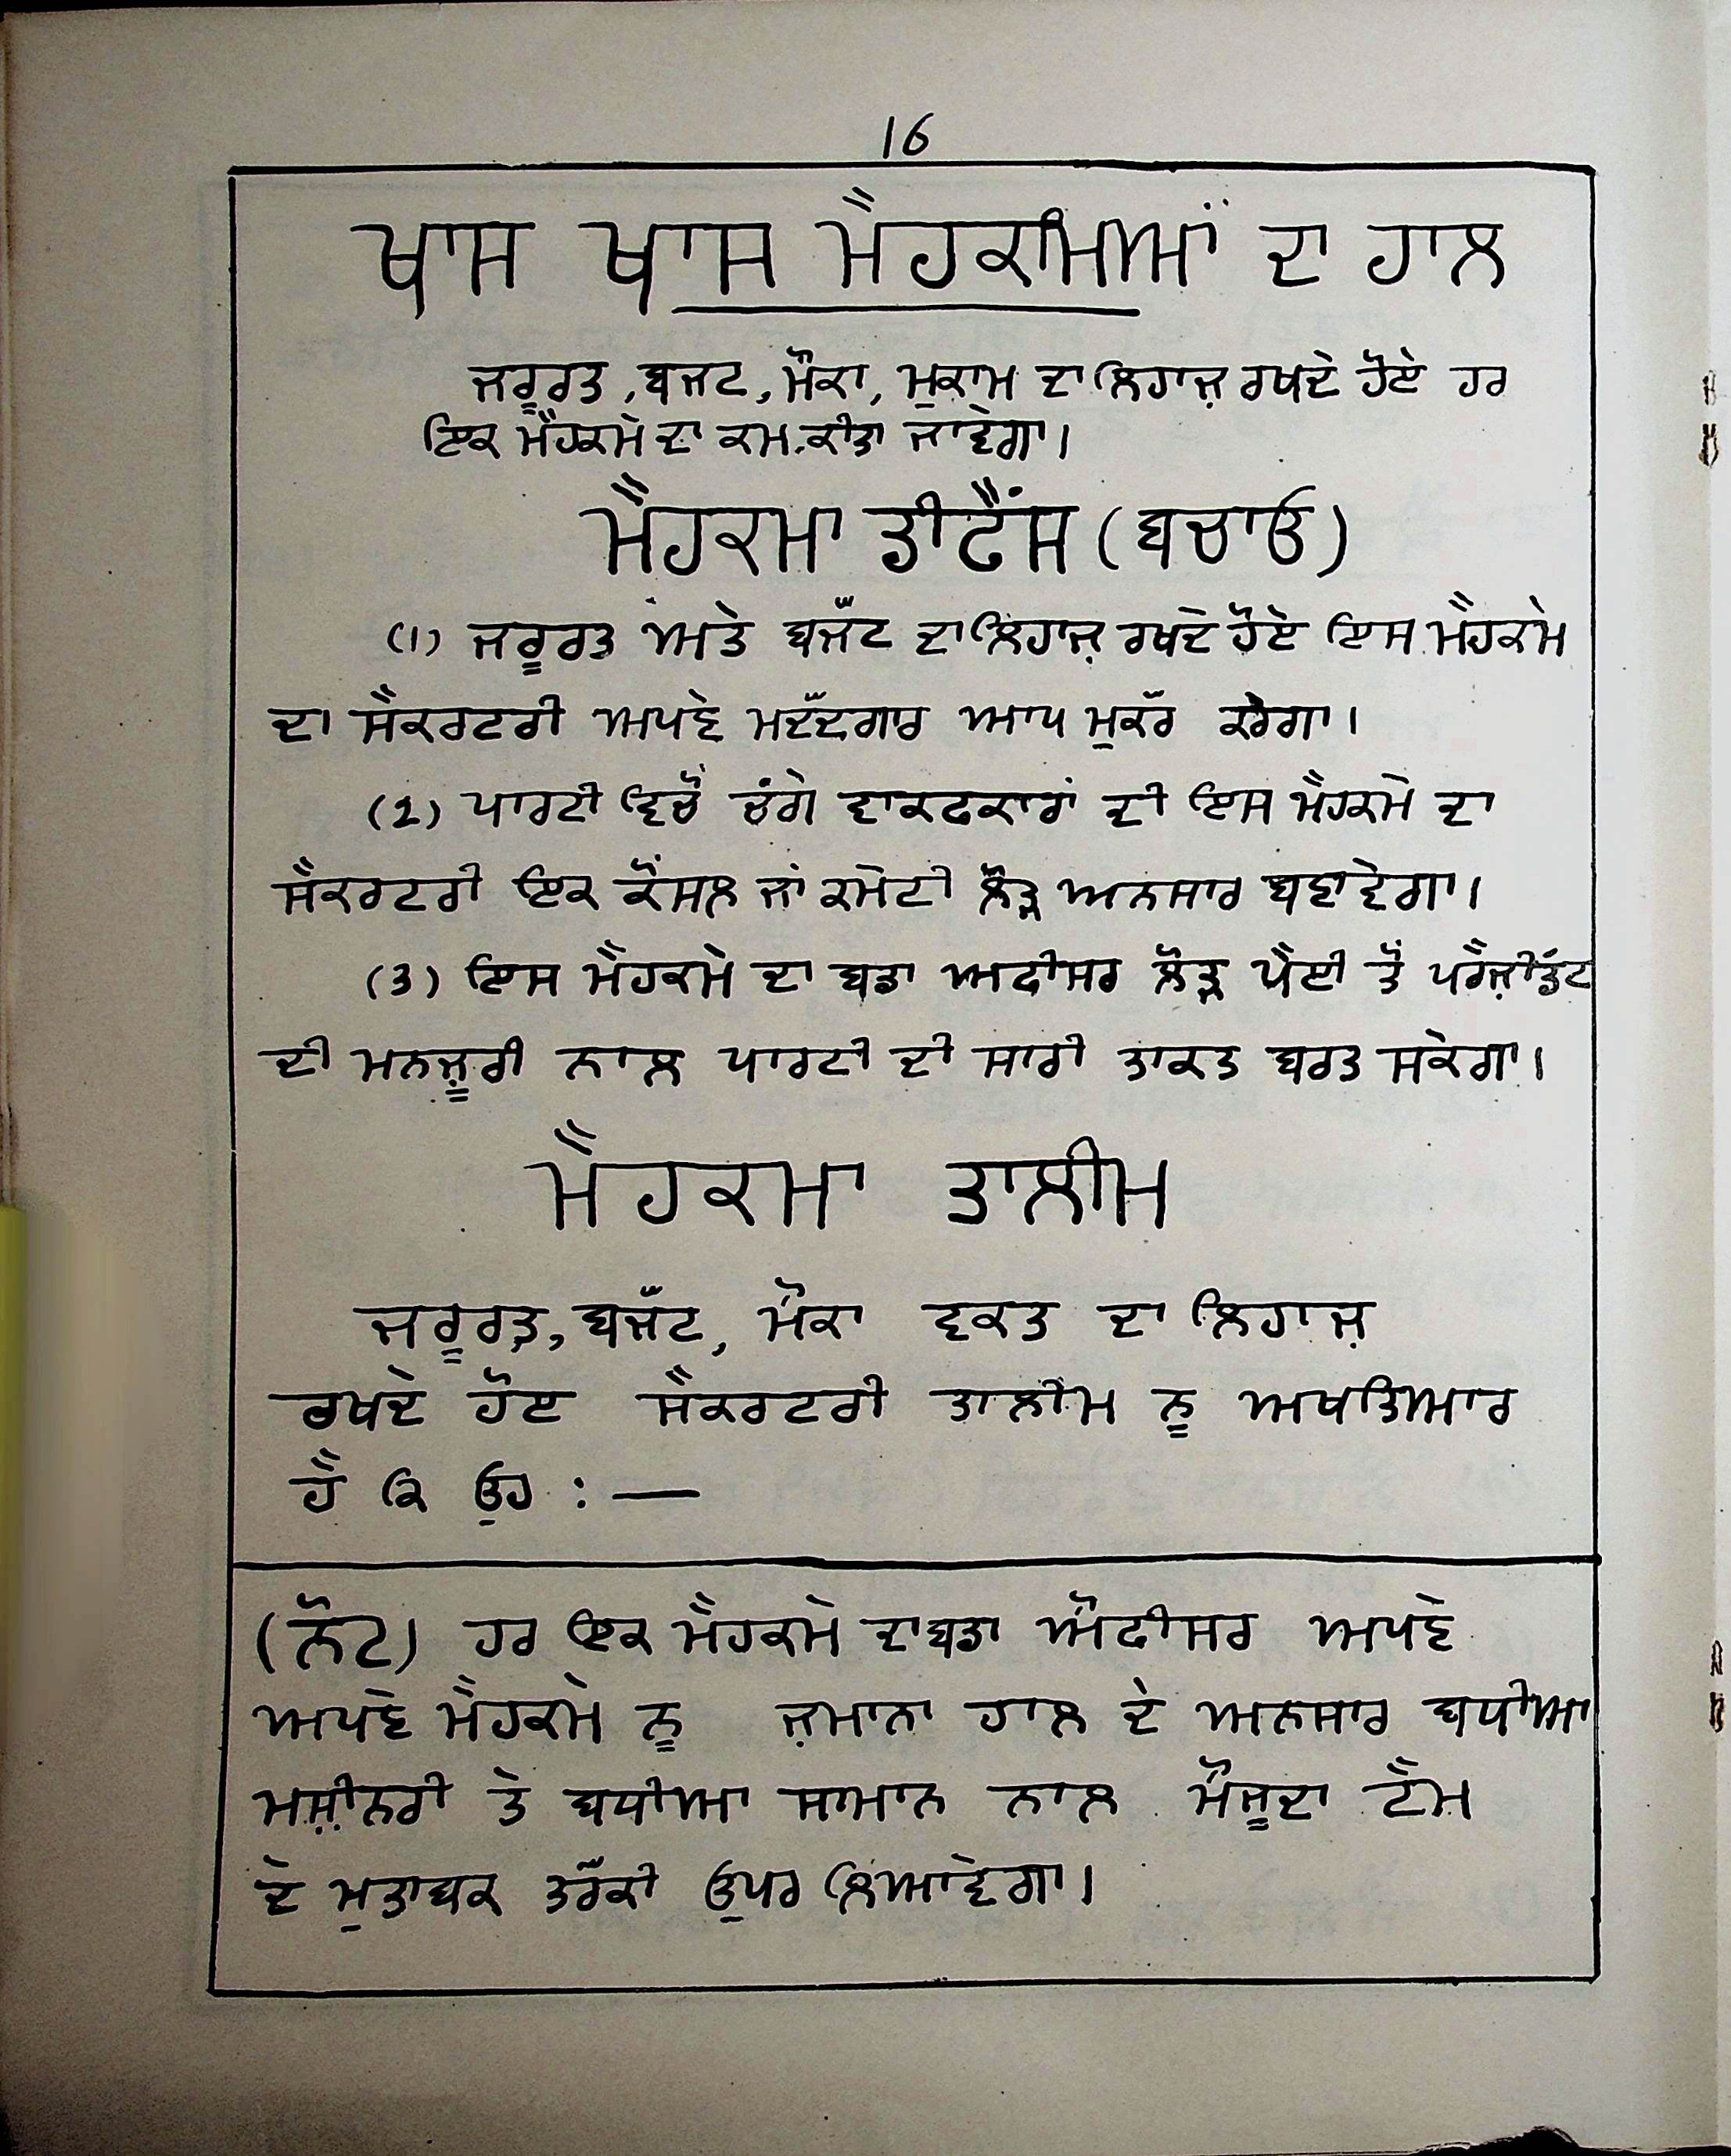 16
ਖਾਸ ਖਾਸ ਮੈਹਕੀਮੀਆਂ ਦਾ ਹਾਲ
ਜਰੂਰਤ, ਬਜਟ, ਮੌਕਾ, ਮੁਕਾਮ ਦਾ ਲਿਹਾਜ਼ ਰਖਦੇ ਹੋਏ ਹਰ
ਇਕ ਮੈਹਕਮੇ ਦਾ ਕਮ ਕੀਤਾ ਜਾਵੇਗਾ।
ਮੈਹਕਮਾ ਡੀਫੈਂਸ (ਬਚਾਓ)
(1) ਜਰੂਰਤ ਅਤੇ ਬਜੱਟ ਦਾ ਲਿਹਾਜ਼ ਰਖਦੇ ਹੋਏ ਇਸ ਮੈਹਕਮੇ
ਦਾ ਸੈਕਰਟਰੀ ਅਪਣੇ ਮਦੱਦਗਾਰ ਆਪ ਮੁਕਰੱ ਕਰੇਗਾ।
(2) ਪਾਰਟੀ ਵਿਚੋਂ ਚੰਗੇ ਵਾਕਫਕਾਰਾਂ ਦੀ ਇਸ ਮੈਹਕਮੇ ਦਾ
ਸੈਕਰਟਰੀ ਇਕ ਕੌਂਸਲ ਜਾਂ ਕਮੇਟੀ ਲੋੜ ਅਨਸਾਰ ਬਣਾਵੇਗਾ।
(3) ਇਸ ਮੈਹਕਮੇ ਦਾ ਬਡਾ ਅਫੀਸਰ ਲੋੜ ਪੈਣੀ ਤੋਂ ਪਰੈਜ਼ੀਡੰਟ
ਦੀ ਮਨਜ਼ੂਰੀ ਨਾਲ ਪਾਰਟੀ ਦੀ ਸਾਰੀ ਤਾਕਤ ਬਰਤ ਸਕੇਗਾ।
ਮੈਹਕਮਾ ਤਾਲੀਮ
ਜਰੂਰਤ, ਬਜੱਟ, ਮੌਕਾ ਵਕਤ ਦਾ ਲਿਹਾਜ਼
ਰਖਦੇ ਹੋਏ ਸੈਕਰਟਰੀ ਤਾਲੀਮ ਨੂ ਅਖਤਿਆਰ
ਹੈ ਕਿ ਉਹ :—
(ਨੋਟ) ਹਰ ਇਕ ਮੈਹਕਮੇ ਦਾ ਬਡਾ ਔਫੀਸਰ ਅਪਣੇ
ਅਪਣੇ ਮੈਹਕਮੇ ਨੂ ਜ਼ਮਾਨਾ ਹਾਲ ਦੇ ਅਨਸਾਰ ਬਧੀਆ
ਮਸ਼ੀਨਰੀ ਤੇ ਬਧੀਆ ਸਾਮਾਨ ਨਾਲ ਮੌਜੂਦਾ ਟੈਮ
ਦੇ ਮੁਤਾਬਕ ਤਰੱਕੀ ਉਪਰ ਲਿਆਵੇਗਾ।